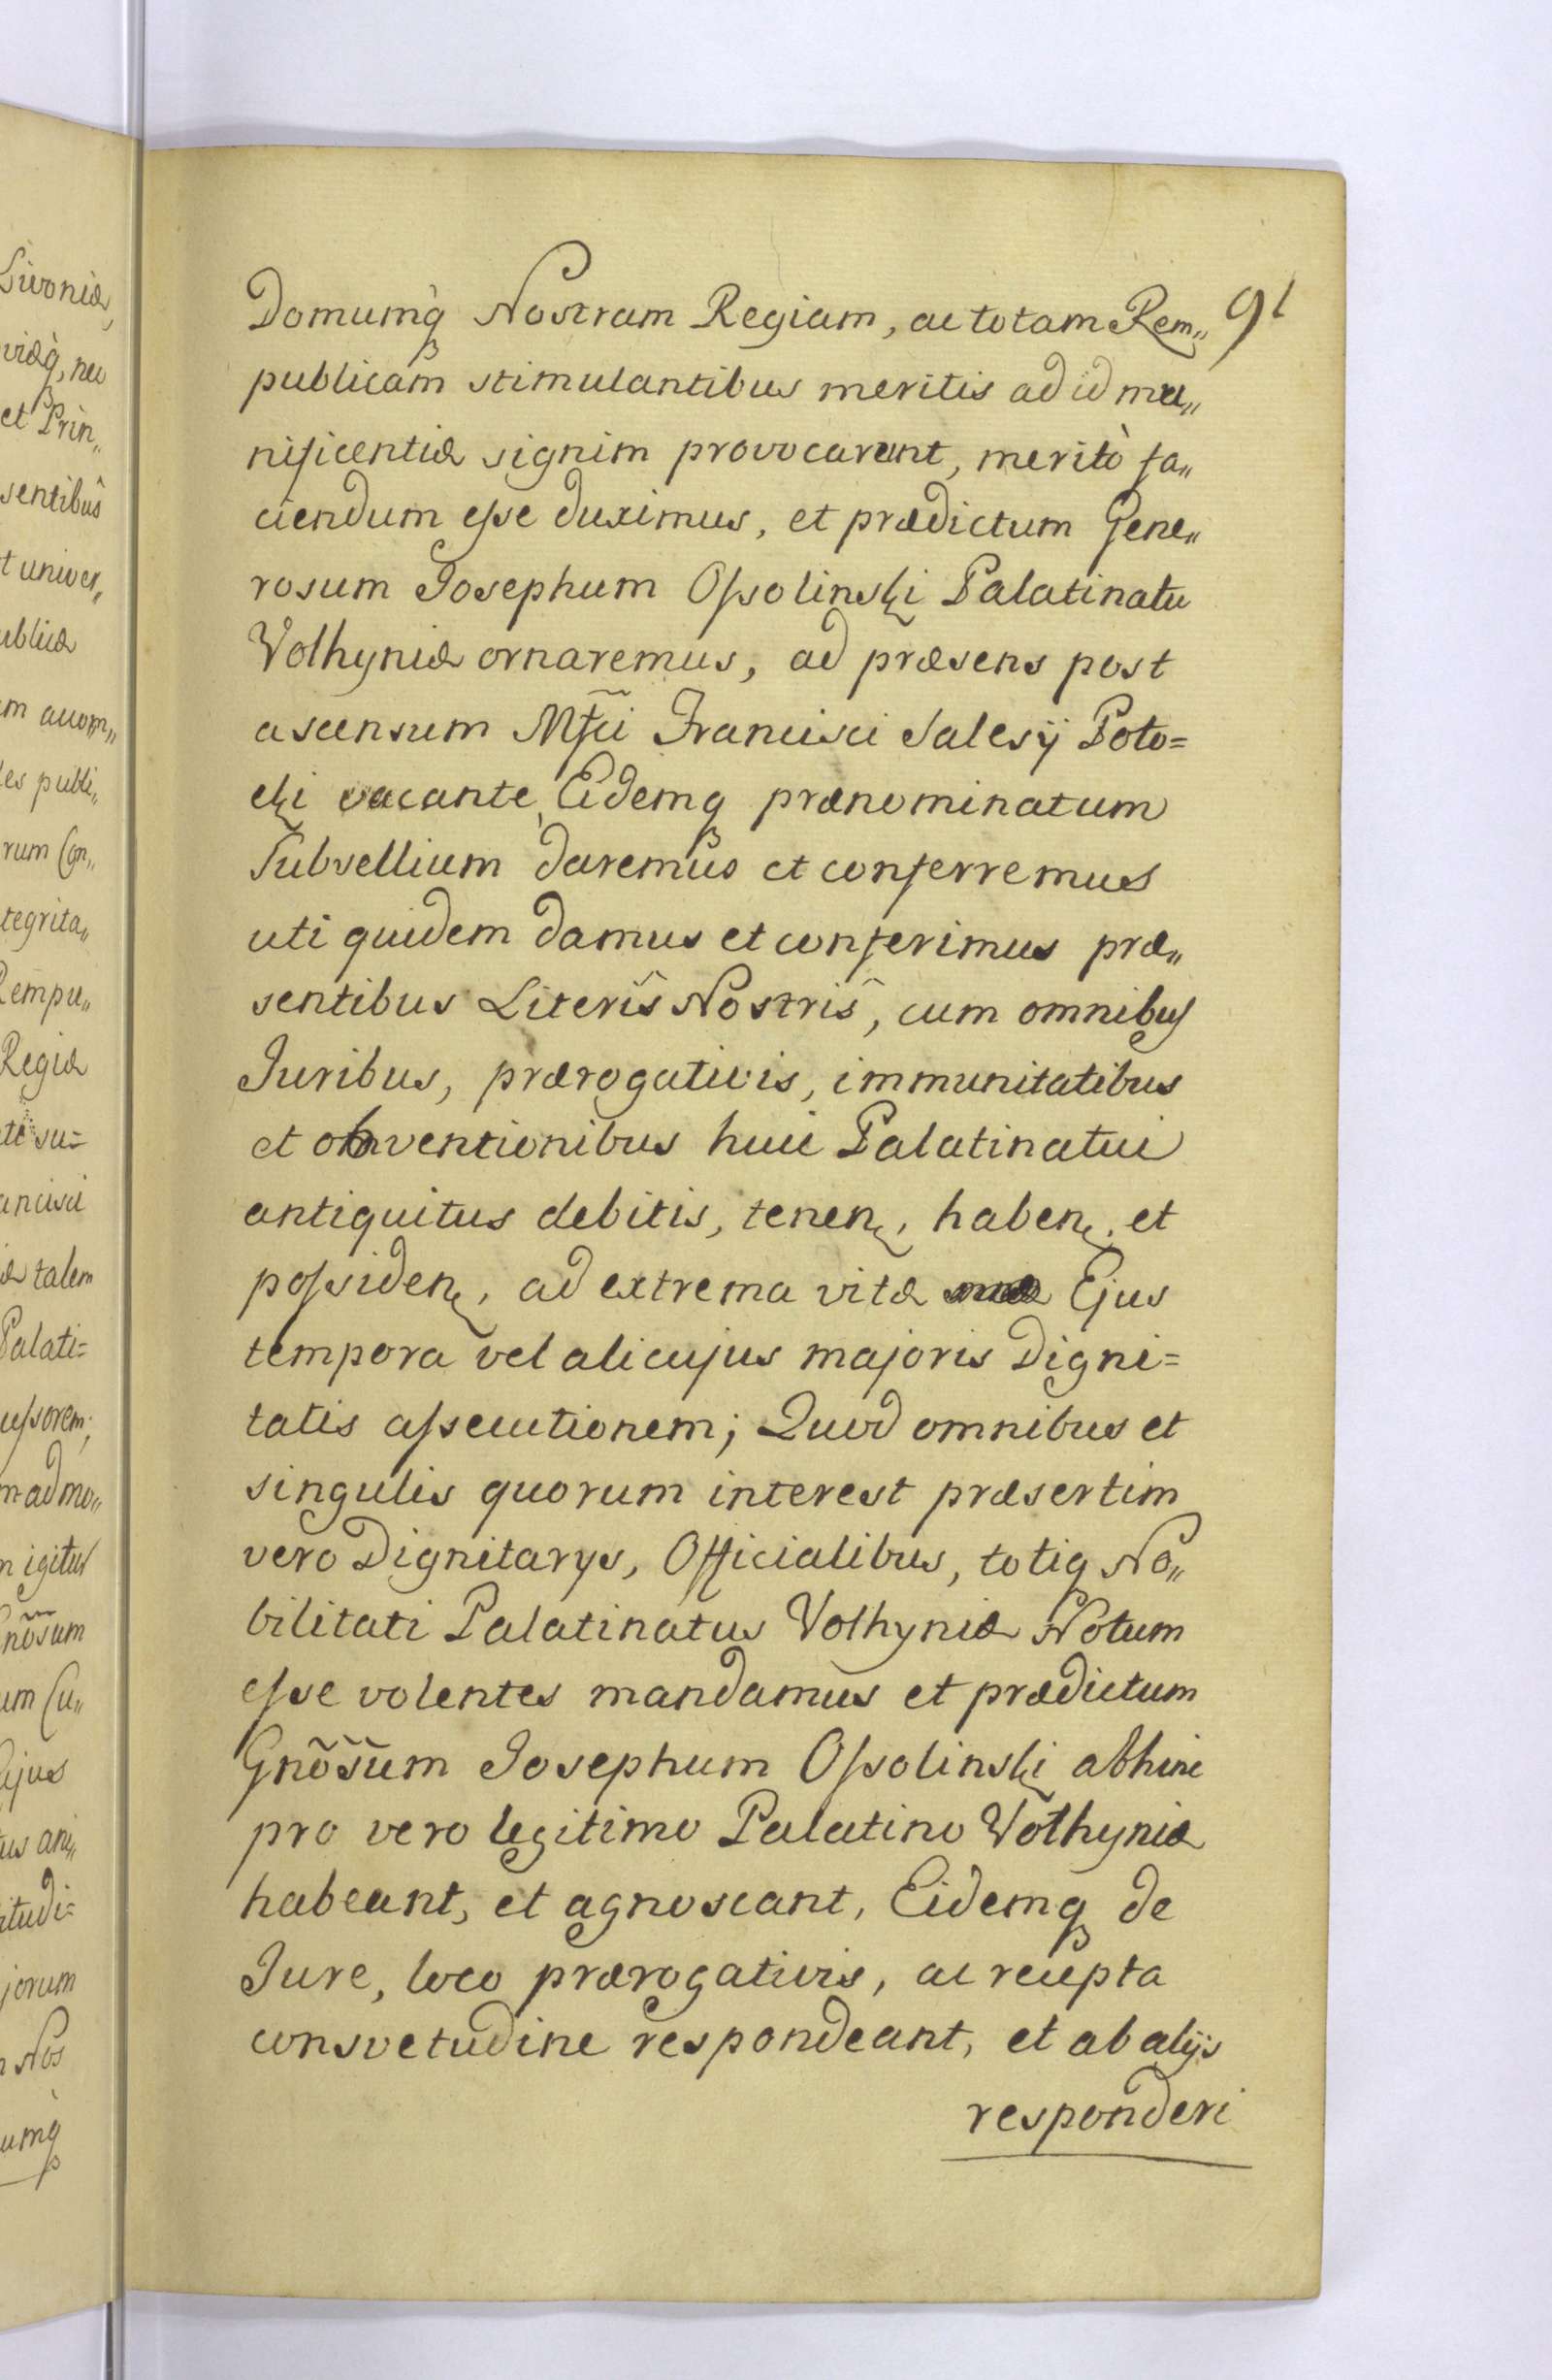 Domumq̀ Nostram Regiam, ac totam Rem„ 91
publicam stimulantibus meritis ad id mu„
nificentiæ signim provocarunt, meritò fa„
ciendum eſse duximus, et prædictum Gene„
rosum Josephum Oſsolinski Palatinatu
Volhyniæ ornaremus, ad præsens post
ascensum Mf̃ci Francisci Salesÿ Poto=
cki vacante, Eidemq prænominatum
Subsellium daremus et conferremus
uti quidem damus et conferimus præ„
sentibus Literîs Nostrîs, cum omnibus
Juribus, prærogativis, immunitatibus
et obventionibus huic Palatinatui
antiquitus debitis, tenen, haben, et
poſsiden, ad extrema vitæ Ejus
tempora vel alicujus majoris Digni=
tatis aſsecutionem; Quod omnibus et
singulis quorum interest præsertim
vero Dignitarys, Officialibus, totiq No„
bilitati Palatinatus Volhyniæ Notum
eſse volentes mandamus et prædictum
Gnõsũm Josephum Oſsolinski abhinc
pro vero legitimo Palatino Volhyniæ
habeant, et agnoscant, Eidemq de
Jure, loco prærogativis, ac recepta
consvetudine respondeant, et ab alijs
responderi
Livoniæ,
viæq̀, nec
et Prin„
sentibûs
t univer„
ublicæ
les publi„
rum Con„
tegrita„
Rempu„
Regiæ
su=
ancisci
æ talem
Palati=
ceſsorem;
m admo„
n igitur
Gnõsum
um Cu„
Ejus
us ani„
itudi=
jorum
Nos
umq̀